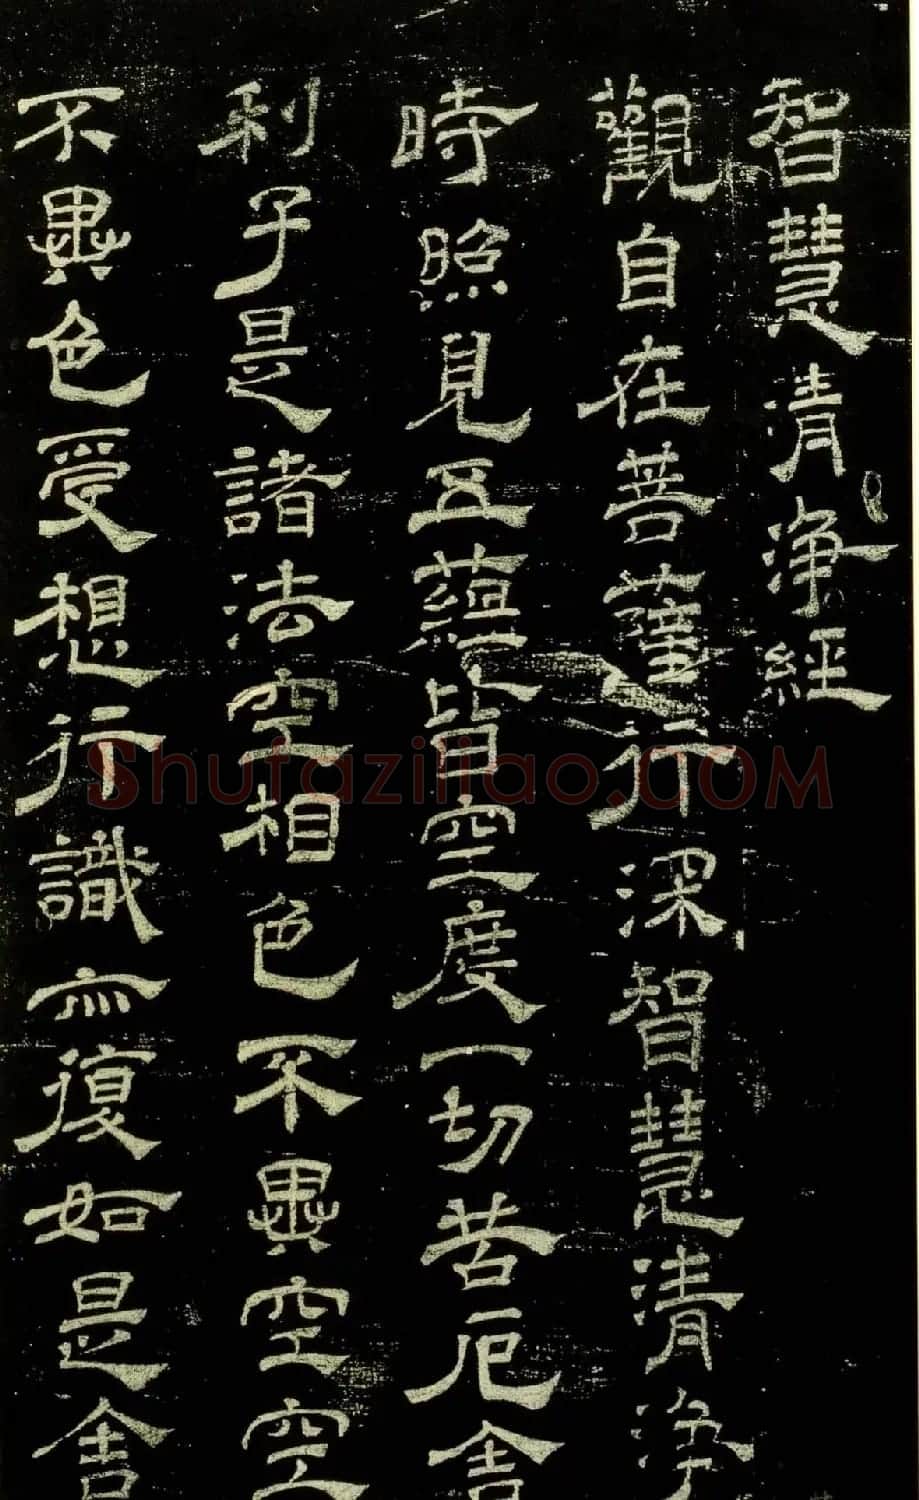 智慧清淨經
觀自在菩薩行深智慧清淨
時照見五蘊皆空度一切苦厄舍
利子是諸法空相色不異空空
不異色受想行識亦復如是舍
Shufaziliao.COM